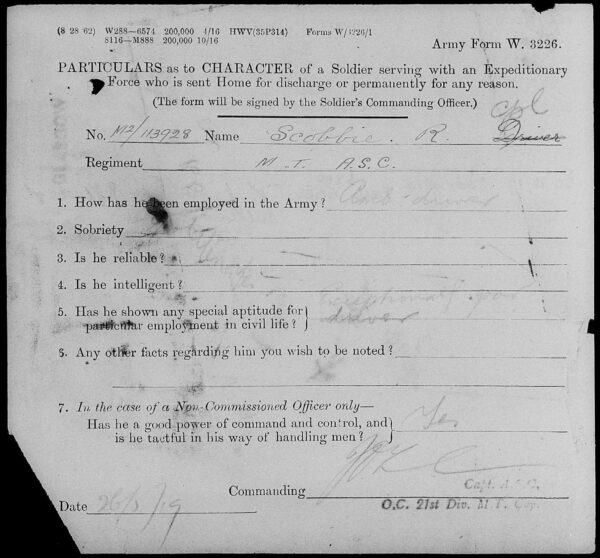 (8 28 62) W288—6574 200,000 4/16 HWV(35P314) Forms W/3226/1
8116—M888 200,000 10/16
Army Form W. 3226.
PARTICULARS as to CHARACTER of a Soldier serving with an Expeditionary
Force who is sent Home for discharge or permanently for any reason.
(The form will be signed by the Soldier's Commanding Officer.)
Cpl
No. M2/113928 Name Scobbie. R. Driver
Regiment M.T. A.S.C.
1. How has he been employed in the Army? driver
2. Sobriety
3. Is he reliable?
4. Is he intelligent?
5. Has he shown any special aptitude for Exceptionally good
particular employment in civil life? driver
6. Any other facts regarding him you wish to be noted?
7. In the case of a Non-Commissioned Officer only—
Has he a good power of command and control, and Yes
is he tactful in his way of handling men?
Commanding Capt. A.S.C.
Date 26/5/19 O.C. 21st Div. M.T. Coy.